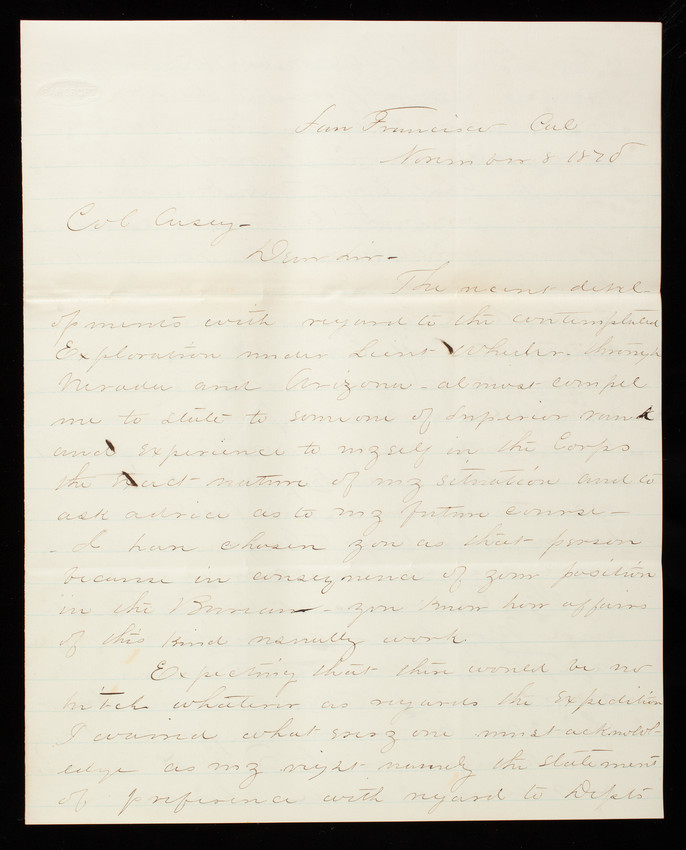 San Francisco Cal
November 8 1870
Col Casey-
Dear Sir-
The recent devel
opments with regard to the contemplated
Exploration under Lieut Wheeler- through
Nevada and Arizona- almost compel
me to state to someone of Superior rank
and experience to myself in the Corps
the exact nature of my situation and to
ask advice as to my future course-
- I have chosen you as that person
because in consequence of your position
in the Bureau- you know how affairs
of this kind usually work
Expecting that there would be no
hitch whatever as regards the Expedition
I waived what every one must acknowl-
edge as my right namely the statement
of preference with regard to Depts